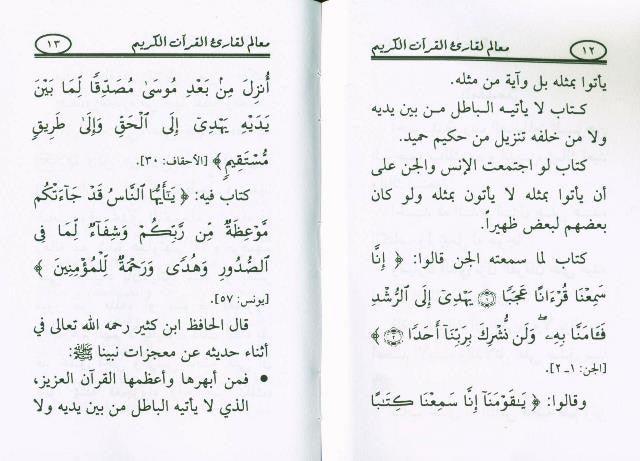 ١٢
معالم لقارئ القرآن الكريم
يأتوا بمثله بل وآية من مثله.
كتاب لا يأتيه الباطل من بين يديه
ولا من خلفه تنزيل من حكيم حميد.
كتاب لو اجتمعت الإنس والجن على
أن يأتوا بمثله لا يأتون بمثله ولو كان
بعضهم لبعض ظهيراً.
كتاب لما سمعته الجن قالوا: ﴿ إِنَّا
سَمِعْنَا قُرْءَانًا عَجَبًا ۝١ يَهْدِىٓ إِلَى ٱلرُّشْدِ
فَـَٔامَنَّا بِهِۦ ۖ وَلَن نُّشْرِكَ بِرَبِّنَآ أَحَدًا ۝٢ ﴾
[الجن: ١-٢].
وقالوا: ﴿ يَـٰقَوْمَنَآ إِنَّا سَمِعْنَا كِتَـٰبًا
معالم لقارئ القرآن الكريم
١٣
أُنزِلَ مِنۢ بَعْدِ مُوسَىٰ مُصَدِّقًا لِّمَا بَيْنَ
يَدَيْهِ يَهْدِىٓ إِلَى ٱلْحَقِّ وَإِلَىٰ طَرِيقٍ
مُّسْتَقِيمٍ ﴾ [الأحقاف: ٣٠].
كتاب فيه: ﴿ يَـٰٓأَيُّهَا ٱلنَّاسُ قَدْ جَآءَتْكُم
مَّوْعِظَةٌ مِّن رَّبِّكُمْ وَشِفَآءٌ لِّمَا فِى
ٱلصُّدُورِ وَهُدًى وَرَحْمَةٌ لِّلْمُؤْمِنِينَ ﴾
[يونس: ٥٧].
قال الحافظ ابن كثير رحمه الله تعالى في
أثناء حديثه عن معجزات نبينا ﷺ:
• فمن أبهرها وأعظمها القرآن العزيز،
الذي لا يأتيه الباطل من بين يديه ولا